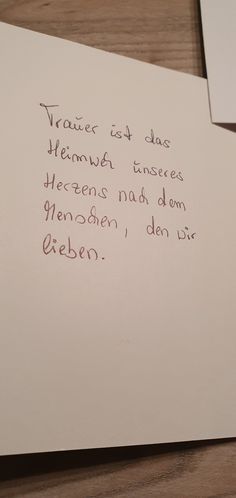 Trauer ist das
Heimweh unseres
Herzens nach dem
Menschen, den wir
lieben.